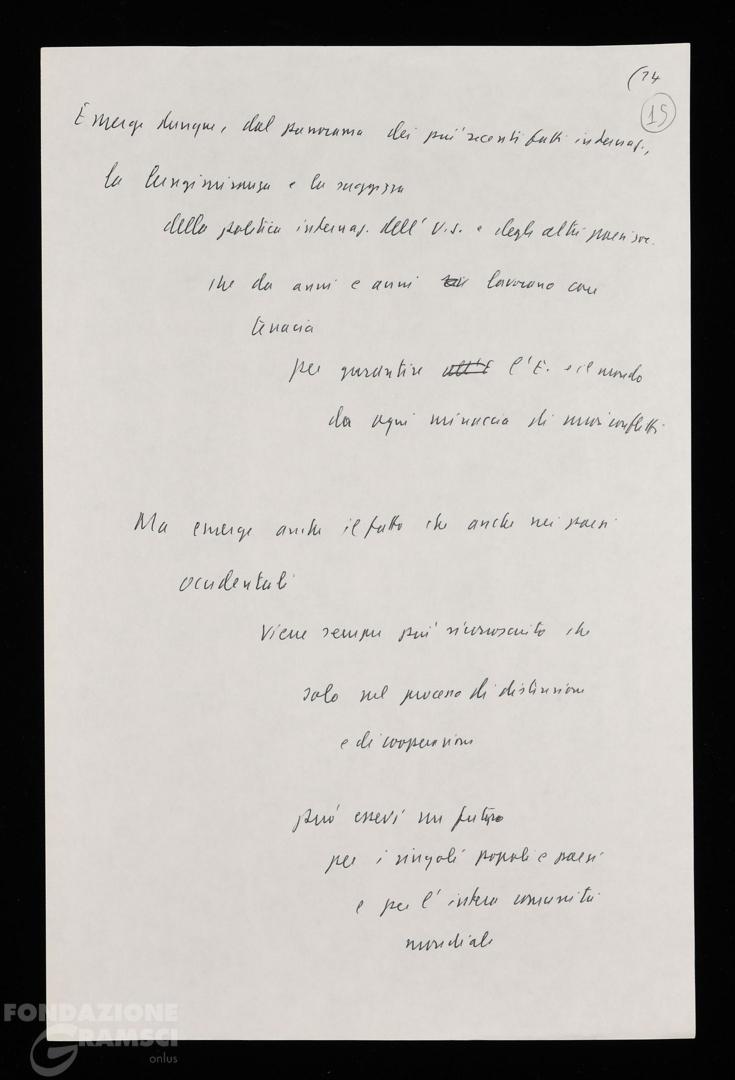 (14
15
Emerge dunque, dal panorama dei più recenti fatti internaz.,
la lungimiranza e la saggezza
della politica internaz. dell'U.S. e degli altri paesi soc.
che da anni e anni lavorano con
tenacia
per garantire all'E l'E. e il mondo
da ogni minaccia di nuovi conflitti
Ma emerge anche il fatto che anche nei paesi
occidentali
viene sempre più riconosciuto che
solo nel processo di distensione
e di cooperazione
può esservi un futuro
per i singoli popoli e paesi
e per l'intera comunità
mondiale
FONDAZIONE
GRAMSCI
onlus